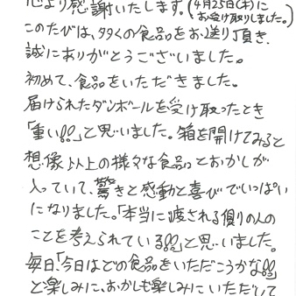 心より感謝いたします。(4月25日(木)にお受け取りしました。)
このたびは、多くの食品をお送り頂き、
誠にありがとうございました。
初めて、食品をいただきました。
届けられたダンボールを受け取ったとき
「重い!!」と思いました。箱を開けてみると
想像以上の様々な食品とおかしが
入っていて、驚きと感動と喜びでいっぱい
になりました。「本当に渡される側の人の
ことを考えられている!!」と思いました。
毎日、「今日はどの食品をいただこうかな!!」
と楽しみに、おかしも楽しみにいただいて